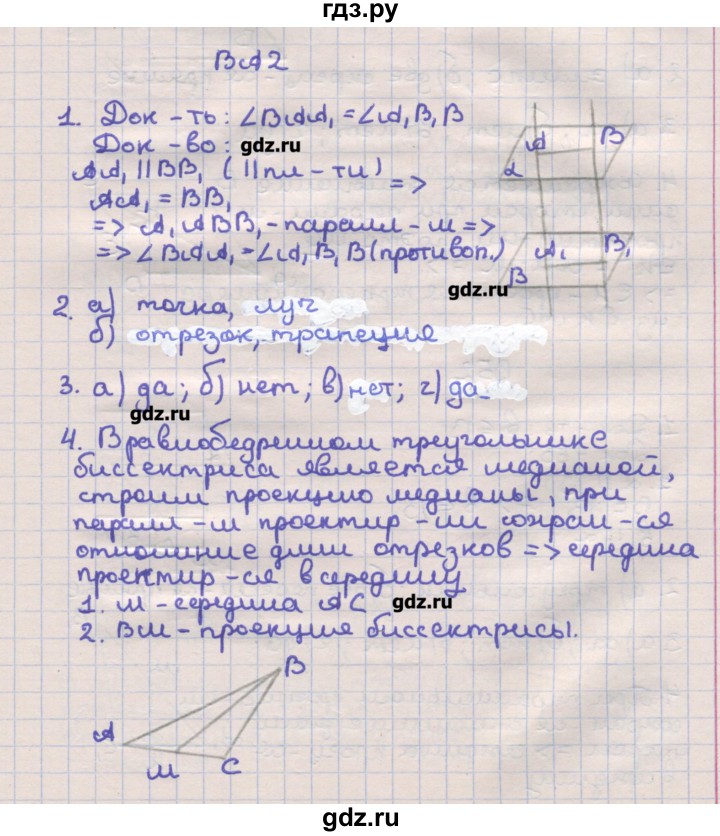 гдз.ру
ВА2
1. Док-ть: ∠BAA₁ = ∠A₁B₁B
Док-во: gdz.ru
AA₁ || BB₁ ( || пл-ти)
AA₁ = BB₁ =>
=> A₁ABB₁ - паралл-м =>
=> ∠BAA₁ = ∠A₁B₁B (противоп.)
A B
α
A₁ B₁
B
gdz.ru
2. а) точка, луч
б) отрезок, трапеция
3. а) да; б) нет; в) нет; г) да
gdz.ru
4. В равнобедренном треугольнике
биссектриса является медианой,
строим проекцию медианы, при
паралл-м проектир-ии сохран-ся
отношние длин отрезков => середина
проектир-ся в середину
1. M - середина AC gdz.ru
2. BM - проекция биссектрисы.
B
A
M C
gdz.ru